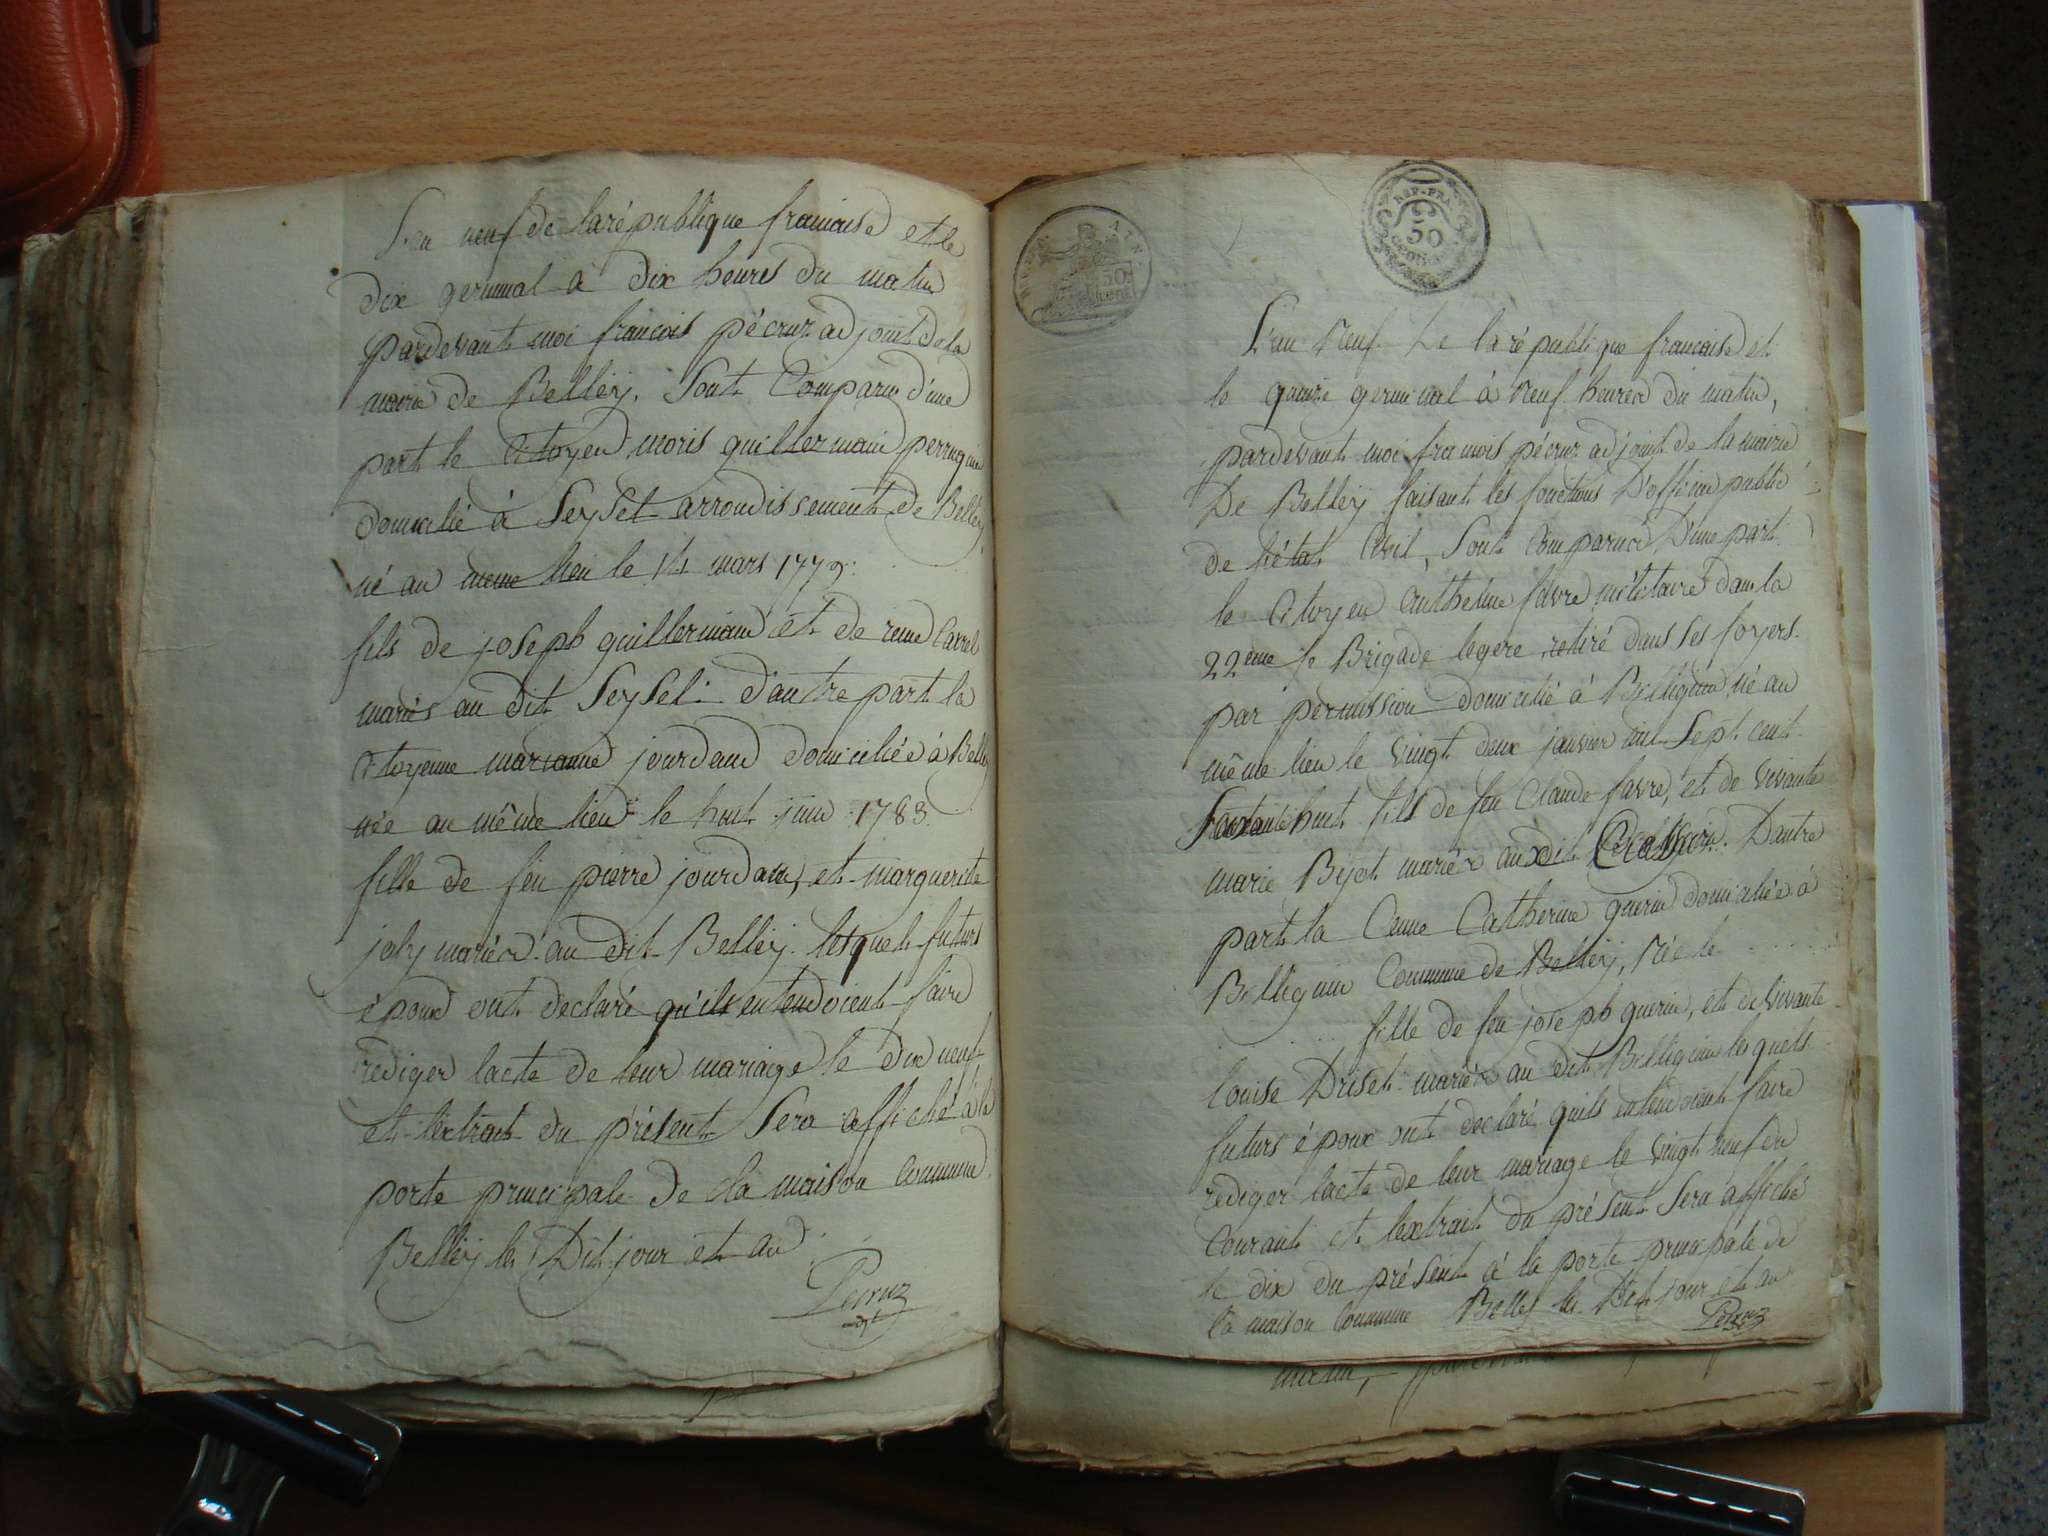 L'an neuf de la république francaise et le
dix germinal à dix heures du matin
pardevant moi francois pécruz adjoint de la
mairie de Belleÿ. Sont Comparus d'une
part le Citoyen moris guillermain perruquier
domicilié à Seysel arrondissement de Belleÿ
né au meme lieu le 14 mars 1779.
fils de joseph guillermain et de reine Carrel
mariés au dit Seysel. d'autre part la
Citoyenne marianne jourdan domiciliée à Belleÿ
née au même lieu le huit juin 1783.
fille de feu pierre jourdain, et marguerite
joly mariés au dit Belleÿ. lesquels futurs
époux ont declaré qu'ils entendoient faire
rediger lacte de leur mariage le dix neuf
et lextrait du présent Sera affiché à la
porte principale de la maison Commune
Belleÿ les Dit jour et an
Pecruz
AIN.
50
REP. FRA
50
centim
L'an Neuf De la république francaise et
le quinze germinal à neuf heures du matin,
pardevant moi francois pécruz adjoint de la mairie
De Belleÿ faisant les fonctions D'officier public
de l'état Civil, Sont Comparus D'une part
le Citoyen anthelme favre militaire dans la
22ème 1/2 Brigade legere retiré dans ses foyers
par permission domicilié à Billignin né au
même lieu le vingt deux janvier mil Sept cent
Soixante huit fils de feu Claude favre, et de vivante
marie Byot mariés audit. D'autre
part la Cenne Catherine guerin domiciliée à
Billignin Commune de Belleÿ, Née le
fille de feu joseph guerin, et de vivante
louise Driset mariés au dit Billignin lesquels
futurs époux ont declaré quils entendoient faire
rediger lacte de leur mariage le vingt neuf du
Courant et lextrait du présent Sera affiché
le dix du présent à la porte principale de
la maison Commune Belley les Dit jour et an
Pecruz
matin,